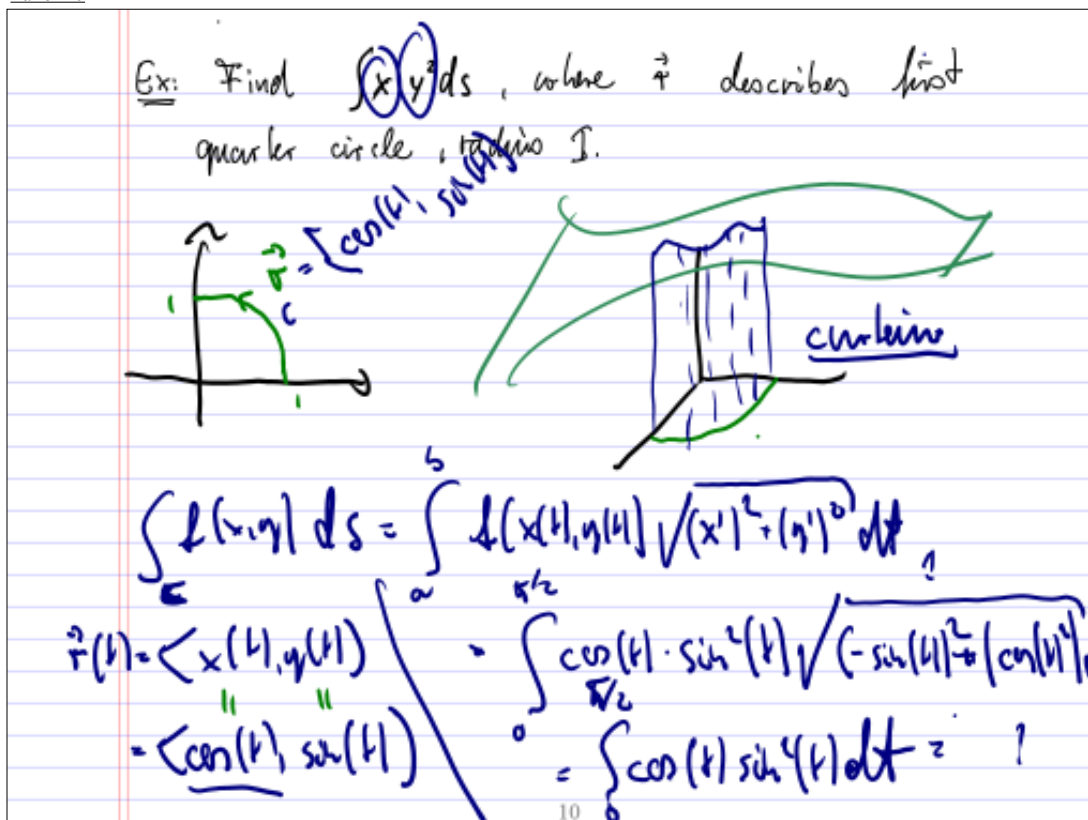 Ex: Find ∫ x y² ds , where r⃗ describes first
quarter circle , radius 1.
r⃗ = [cos(t), sin(t)]
1
C
1
∫_C f(x,y) ds = ∫_a^b f(x(t), y(t)) √((x')² + (y')²) dt
r⃗(t) = <x(t), y(t)>
= ∫_0^{π/2} cos(t) · sin²(t) √((-sin(t))² + (cos(t))²)
= <cos(t), sin(t)>
= ∫_0^{π/2} cos(t) sin²(t) dt = ?
10